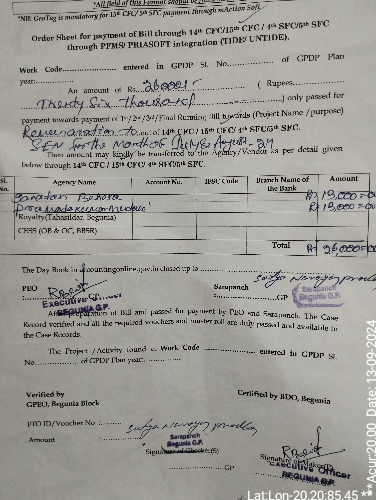 *All field of this Format should be
*NB: GeoTag is mandatory for 15th CFC/5th SFC payment through mAction Soft
Order Sheet for payment of Bill through 14th CFC/15th CFC / 4th SFC/5th SFC
through PFMS/ PRIASOFT integration (TIDE/ UNTIDE).
Work Code.................. entered in GPDP Sl. No.................. of GPDP Plan
year:..................
An amount of Rs. 26000/- ( Rupees..................
Thenty Six thousand ..................) only passed for
payment towards payment of 1st/2nd/3rd/Final Running Bill towards (Project Name / purpose)
Remuneration to out of 14th CFC / 15th CFC/ 4th SFC/5th SFC.
SEN for the month of August-24
Then amount may kindly be transferred to the Agency/Vendor as per detail given
below through 14th CFC / 15th CFC/ 4th SFC/5th SFC.
Sl. No. Agency Name Account No. IFSC Code Branch Name of the Bank Amount
Sanadan Behera 13,000=00
13,000=00
Royalty(Tahasildar, Begunia)
CESS (OB & OC, BBSR)
Total 26,000=00
The Day Book in accountingonline.gov.in closed up to ..................
PEO Sarapanch
Executive Officer
BEGUNIA G.P.
:..................GP
Sarapanch
Begunia G.P.
After preparation of Bill and passed for payment by PEO and Sarapanch. The Case
Record verified and all the required vouchers and muster roll are duly passed and available in
the Case Records.
The Project /Activity found of Work Code .................. entered in GPDP Sl.
No.................. of GPDP plan year..................
Verified by Certified by BDO, Begunia
GPEO, Begunia Block
FTO ID/Voucher No :..................
Amount :..................
Sarapanch
Begunia G.P.
Signature of Checker(S)
..................GP
Signature of Maker(P)
Executive Officer
BEGUNIA G.P.
Lat:Lon-20.20:85.45***Acur:20.00 Date:13-09-2024